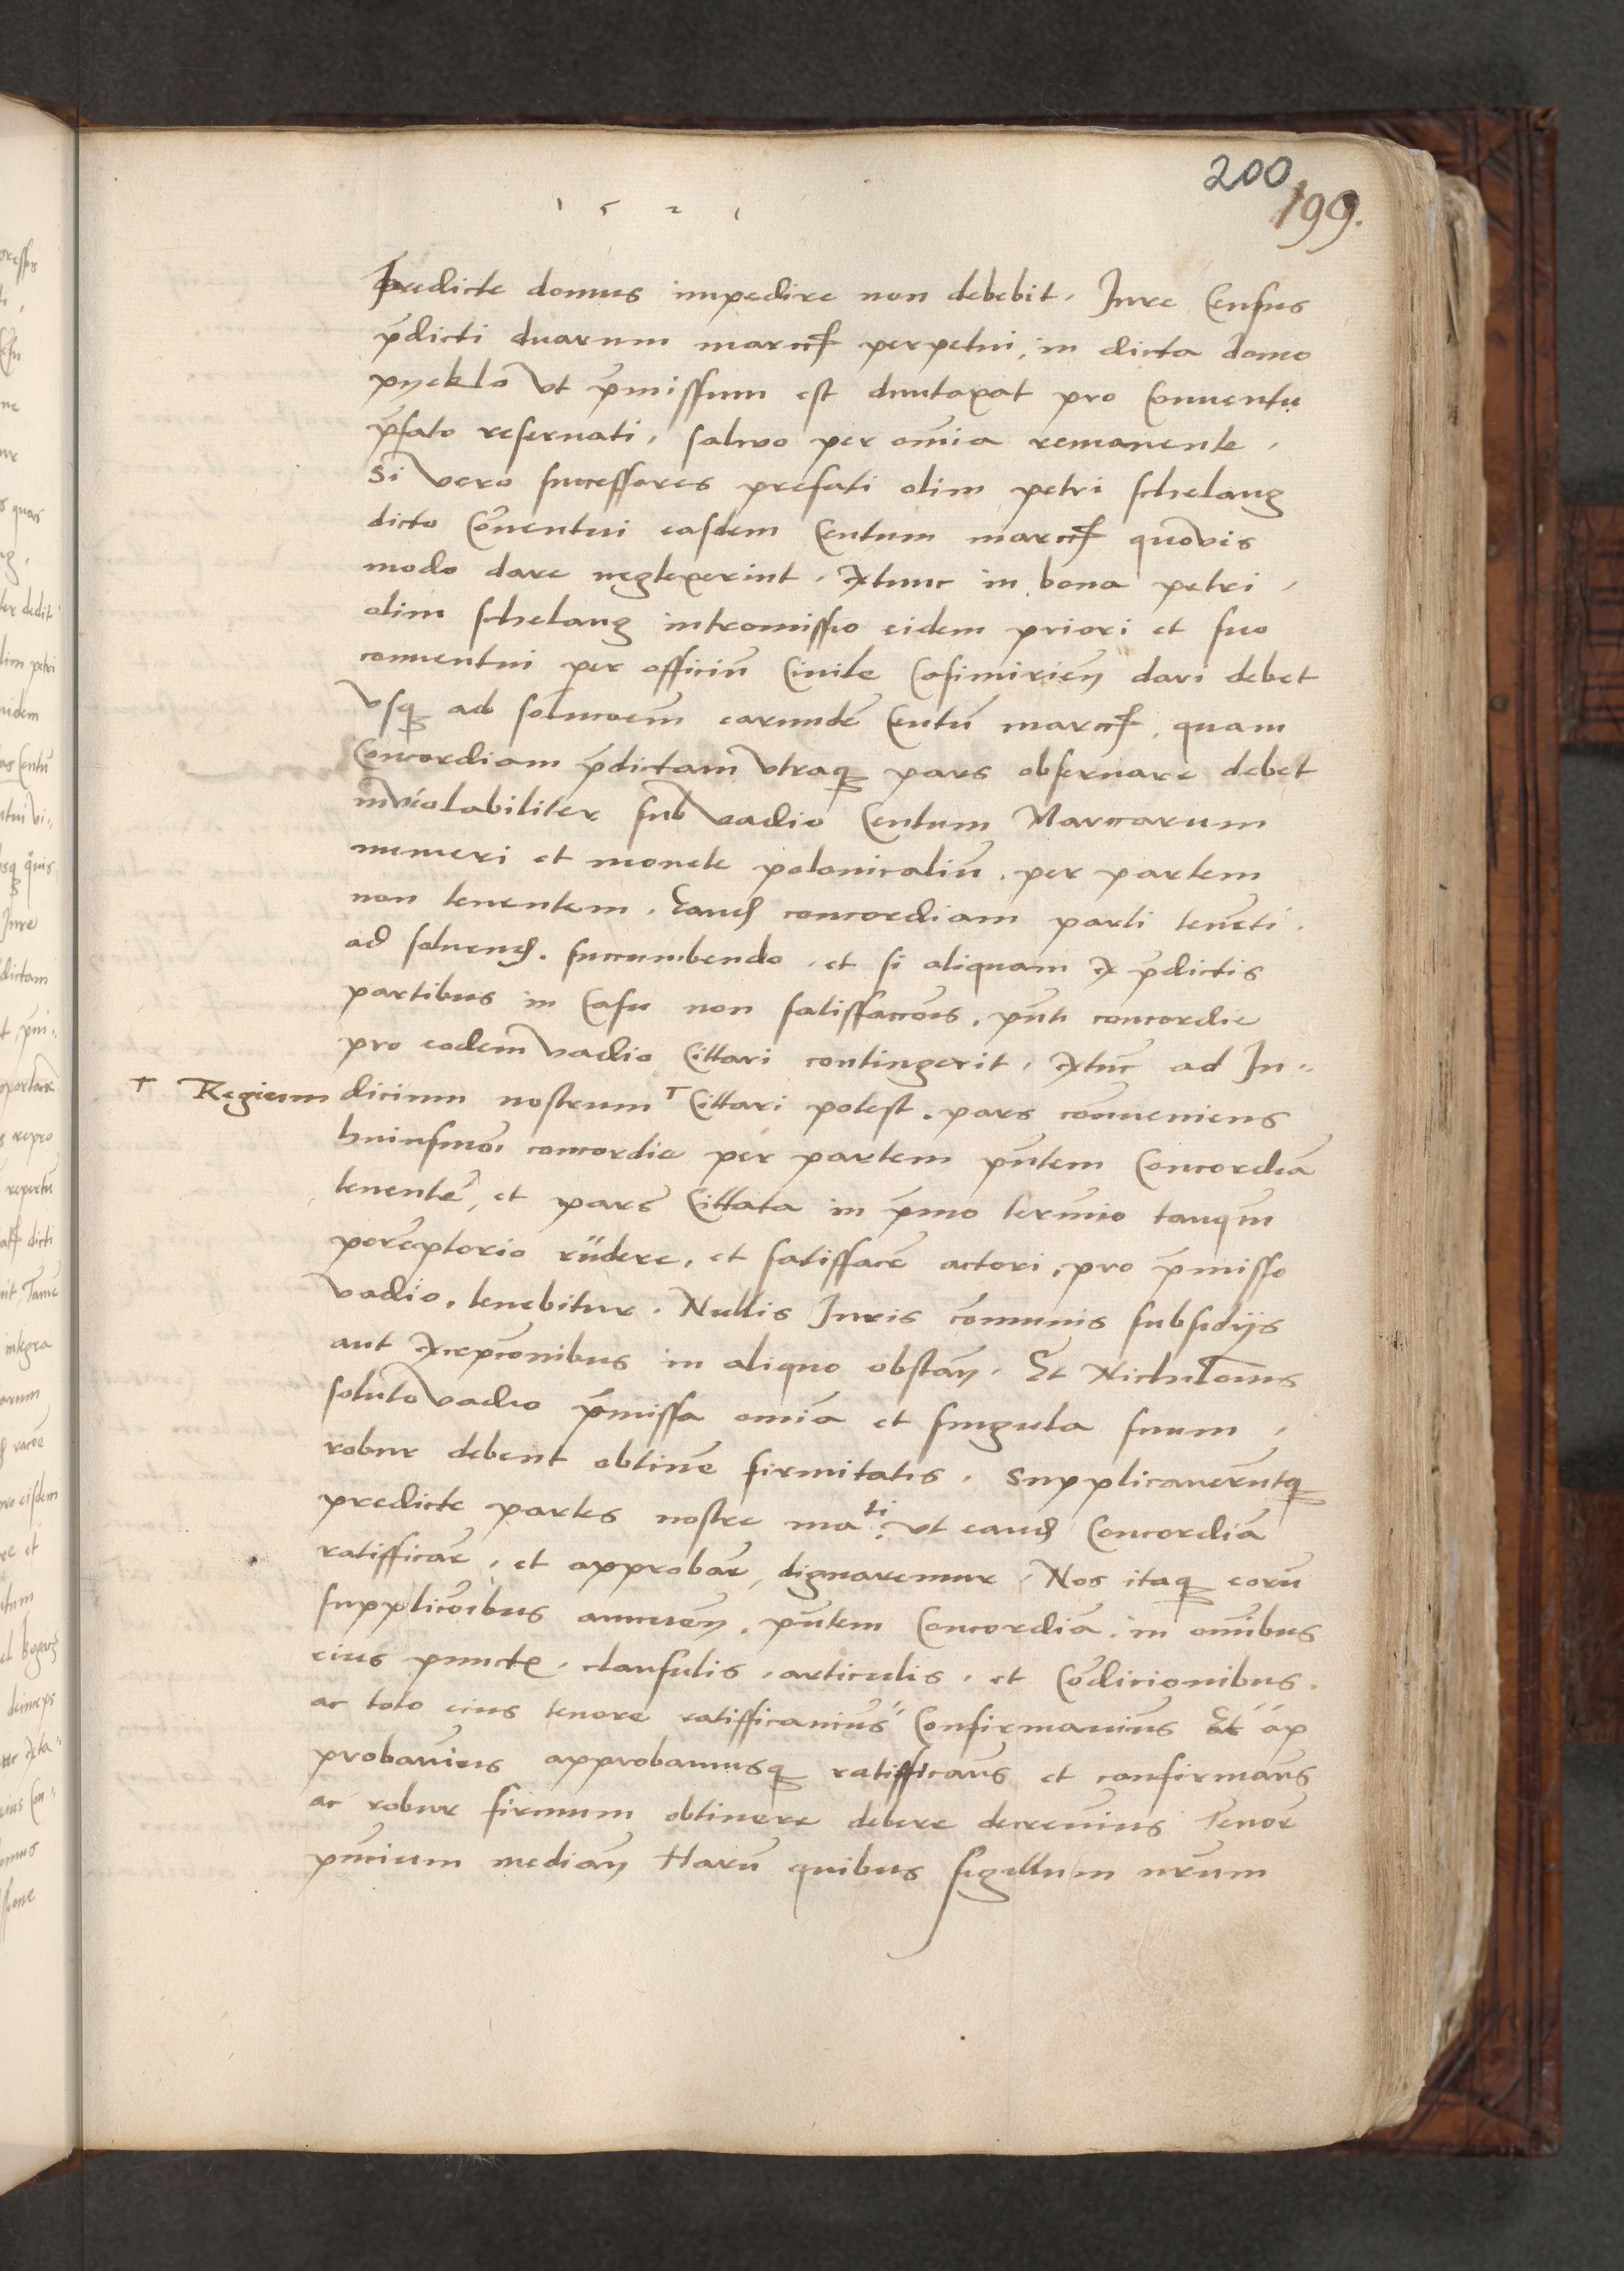 200
199.
1 5 2 1
Predicte domus impedire non debebit. Jure Census
p̄dicti duarum marcaꝝ perpetui, in dicta domo
pyeklo vt p̄missum est duntaxat pro Conuentu
p̄fato reseruati, saluo per om̄ia remanente.
Si vero successores prefati olim petri schelang
dicto Cōuentui easdem Centum marcaꝝ quouis
modo dare neglexerint. Extunc in bona petri
olim schelang intromissio eidem priori et suo
conuentui per officiū Ciuile Casimirien̄ dari debet
vsqꝫ ad soluc̄oem earundē Centū marcaꝝ, quam
Concordiam p̄dictam vtraqꝫ pars obseruare debet
inuiolabiliter sub vadio Centum Marcarum
numeri et monete polonicaliū. per partem
non tenentem. Eandꝫ concordiam parti tenēti.
ad soluendꝫ. succumbendo. et si aliquam Ex p̄dictis
partibus in Casu non satisfacc̄ois. p̄nti concordie
pro eodem vadio Cittari contingerit. Extūc ad Ju-
+ Regium dicium nostrum + Cittari potest. pars cōnueniens
huiusmōi concordie per partem p̄ntem Concordiā
tenentē, et pars Cittata in p̄mo termīo tanqm̄
perēptorio rn̄dere, et satisfacē actori, pro p̄misso
vadio, tenebitur. Nullis Juris cōmunis subsidijs
aut Excepc̄onibus in aliquo obstan̄. Et Nichilominus
soluto vadio p̄missa om̄ia et singula suum
robur debent obtinē firmitatis. Supplicaueruntqꝫ
predicte partes nostre ma^ti. vt eandꝫ Concordiā
ratifficarē, et approbarē, dignaremur. Nos itaqꝫ eorū
supplicc̄oibus annuen̄. p̄ntem Concordiā. in om̄ibus
eius punctꝭ. clausulis. articulis. et Cōdicionibus.
ac toto eius tenore ratifficauimus Confirmauimus Et ap
probauimus approbamusqꝫ ratifficamus et confirmamus
ac robur firmum obtinere debere decreuimus Tenorē
p̄ncium median̄ Harū quibus sigillum nr̄um